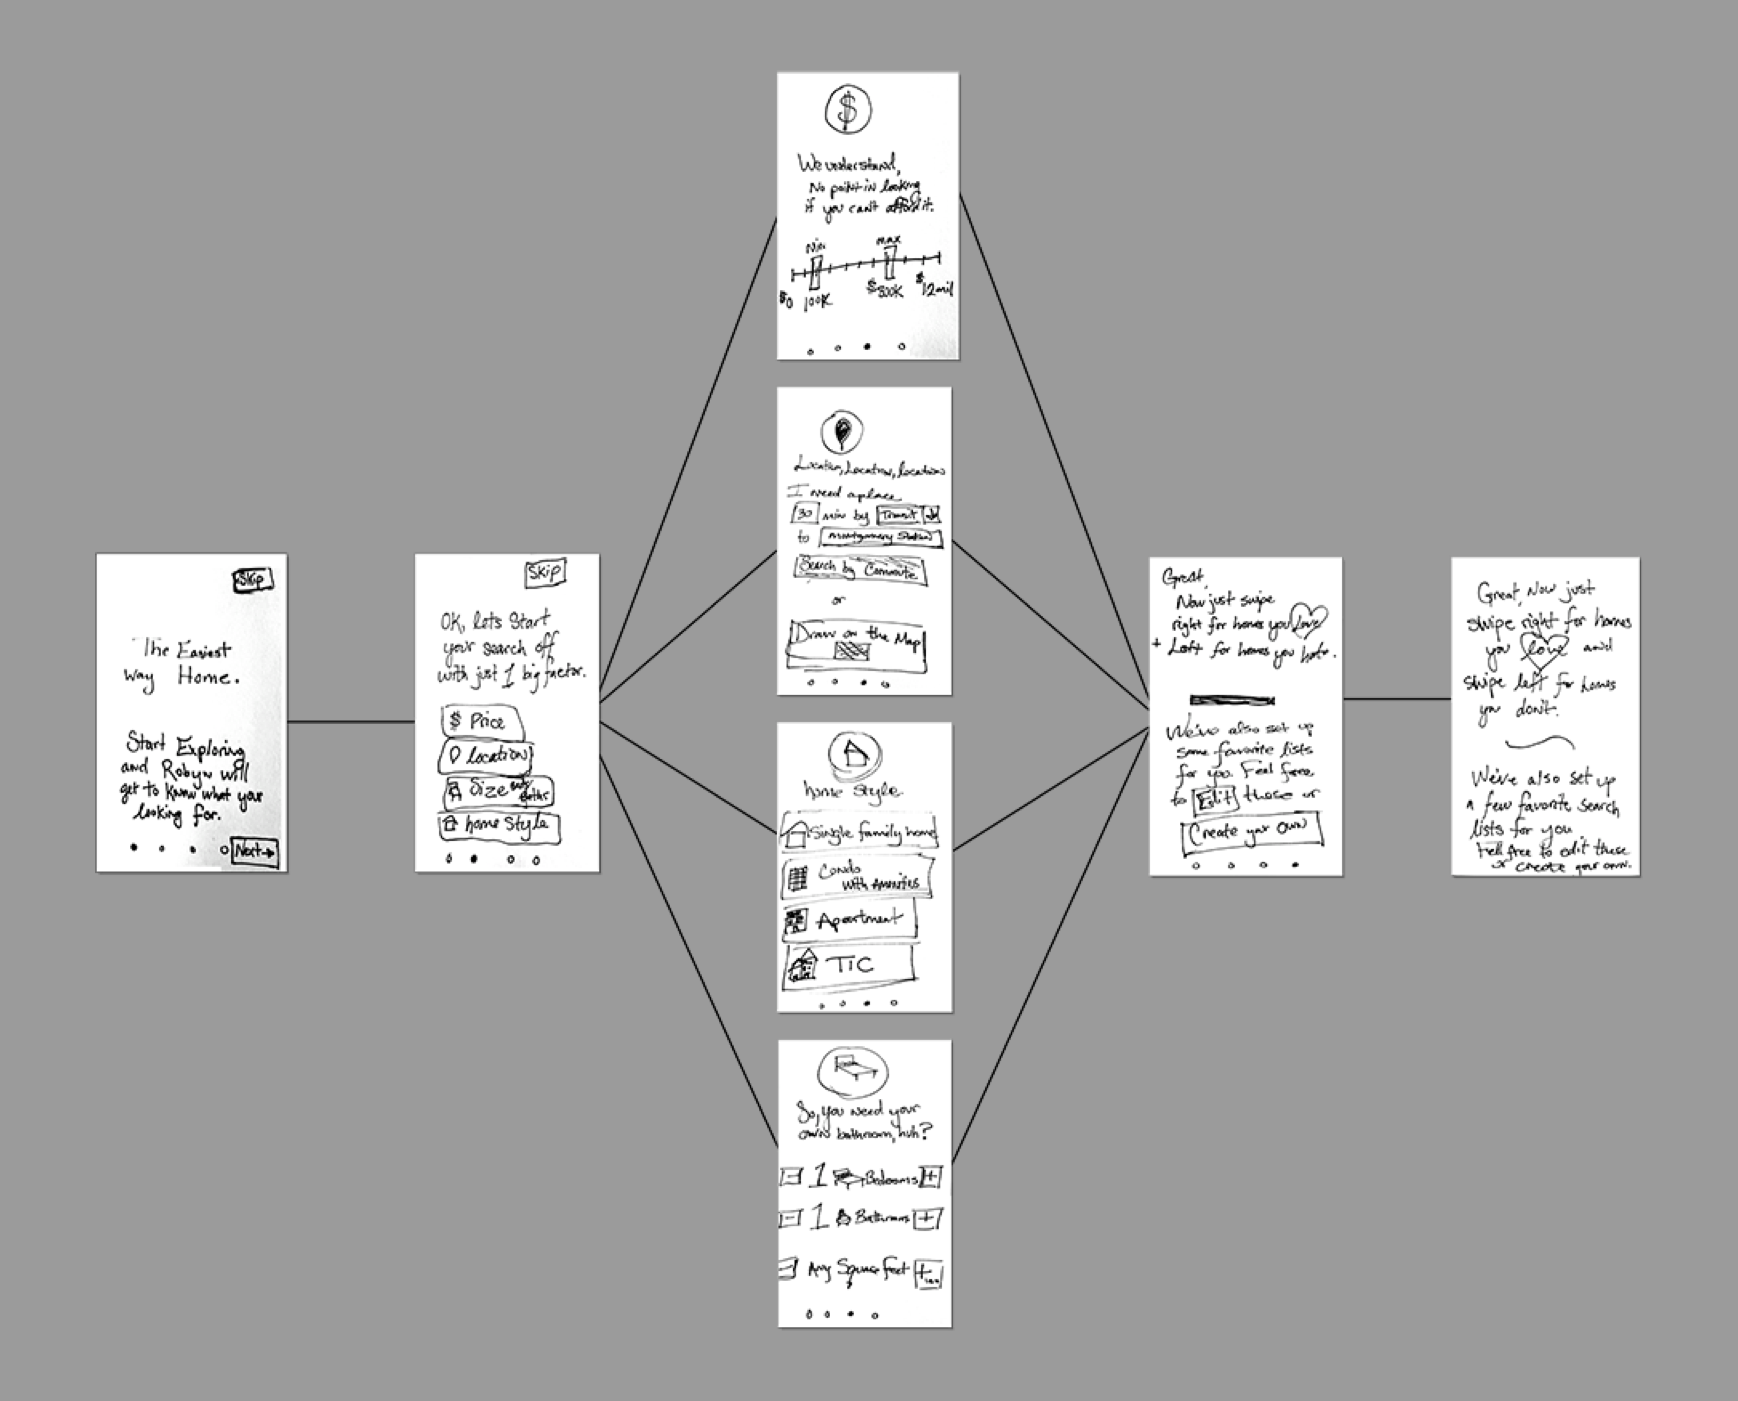 Skip
The Easiest
way Home.
Start Exploring
and Robyn will
get to know what your
looking for.
Next→
Skip
OK, lets Start
your search off
with just 1 big factor.
$ Price
location
Size
Baths
home Style
$
We understand,
No point in looking
if you can't afford it.
Min
max
$0 100K $800K $12mil
Location, Location, location
I need a place
30 min by Transit
to Montgomery Station
Search by Commute
or
Draw on the Map
home Style
Single family home
Condo
with Amenities
Apartment
TIC
So, you need your
own bathroom, huh?
- 1 Bedrooms +
- 1 Bathrooms +
- Any Square feet +
Great,
Now just swipe
right for homes you love
+ Left for homes you hate.
We've also set up
some favorite lists
for you. Feel free
to Edit these or
Create your own
Great, Now just
swipe right for homes
you love and
swipe left for homes
you don't.
We've also set up
a few favorite search
lists for you.
feel free to edit these
or create your own.